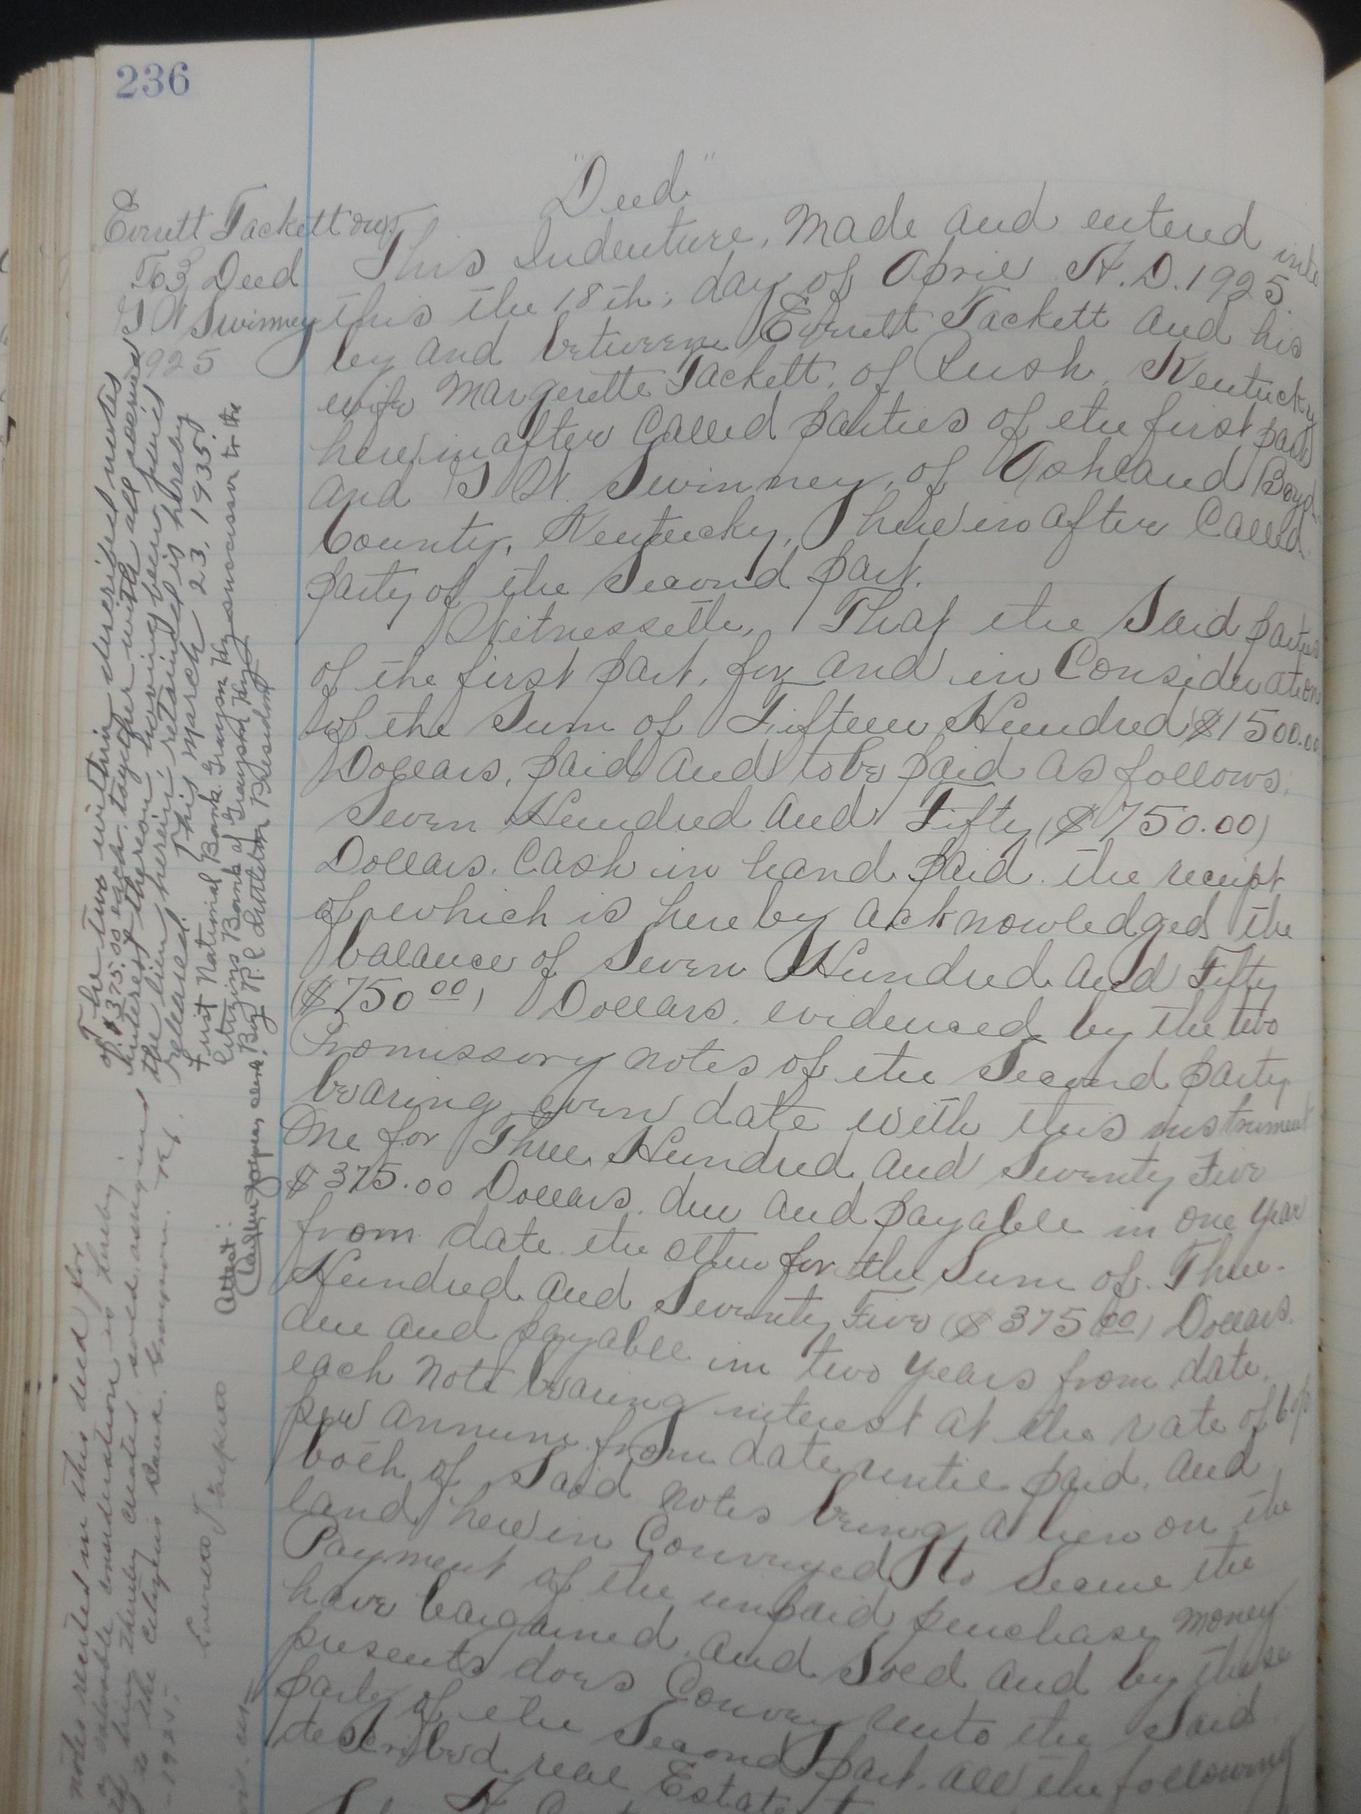 236
"Deed"
Everett Tackett &c
To } Deed
J W Swinney
1925
This Indenture, Made and entered into
this the 18th, day of April A.D. 1925.
by and between Everett Tackett and his
wife Margerette Tackett, of Rush, Kentucky
herein after Called parties of the first part
and J W. Swinney, of Ashland Boyd
County, Kentucky, herein after Called
party of the Second part.
Witnesseth, That the Said parties
of the first part, for and in Consideration
of the Sum of Fifteen Hundred $1500.00
Dollars, paid and to be paid as follows:
Seven Hundred and Fifty ($750.00)
Dollars. Cash in hand paid. the receipt
of which is hereby acknowledged the
balance of Seven Hundred and Fifty
($750.00) Dollars. evidenced by the two
Promissory notes of the Second party
bearing even date with this instrument
One for Three Hundred and Seventy Five
$375.00 Dollars. due and payable in one year
from date the other for the Sum of. Three
Hundred and Seventy Five ($375.00) Dollars.
due and payable in two years from date.
each Note bearing interest at the rate of 6%
per annum from date until paid. and
both of Said notes being a lien on the
land herein Conveyed to Secure the
Payment of the unpaid purchase money
have bargained and Sold and by these
presents does Convey unto the Said
party of the Second part. all the following
described real Estate
The two within described notes
of $375.00 each together with all accrued
interest thereon having been paid
the lien herein retained is hereby
released. This March 23, 1935
First National Bank Grayson Ky successor to the
Citizens Bank of Grayson Ky
By R C Littleton President
Attest:
notes recited in this deed for
valuable consideration is hereby
thereby created sold, assigned
to the Citizens Bank. Grayson. Ky.
-1925-